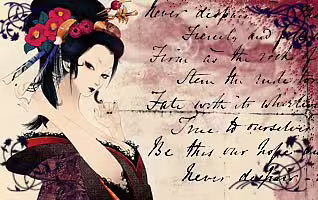 Never despair
Fiercely and
Firm as the rock of
Stem the rude
Fate with its
True to ourselves
Be this our hope
Never despair